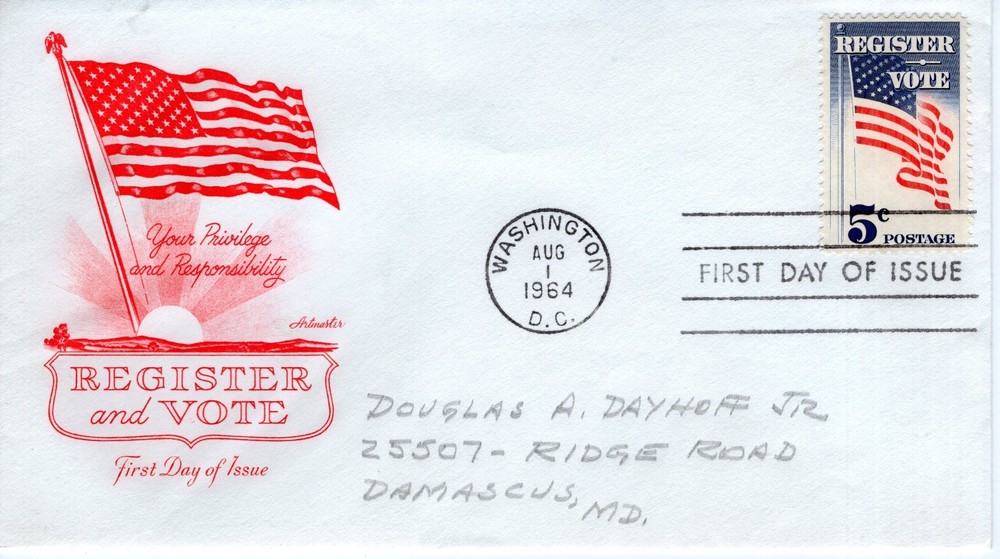 Your Privilege
and Responsibility
Artmaster
REGISTER
and VOTE
First Day of Issue
WASHINGTON
AUG
1
1964
D.C.
REGISTER
VOTE
5c
POSTAGE
FIRST DAY OF ISSUE
DOUGLAS A. DAYHOFF JR
25507- RIDGE ROAD
DAMASCUS,
MD.